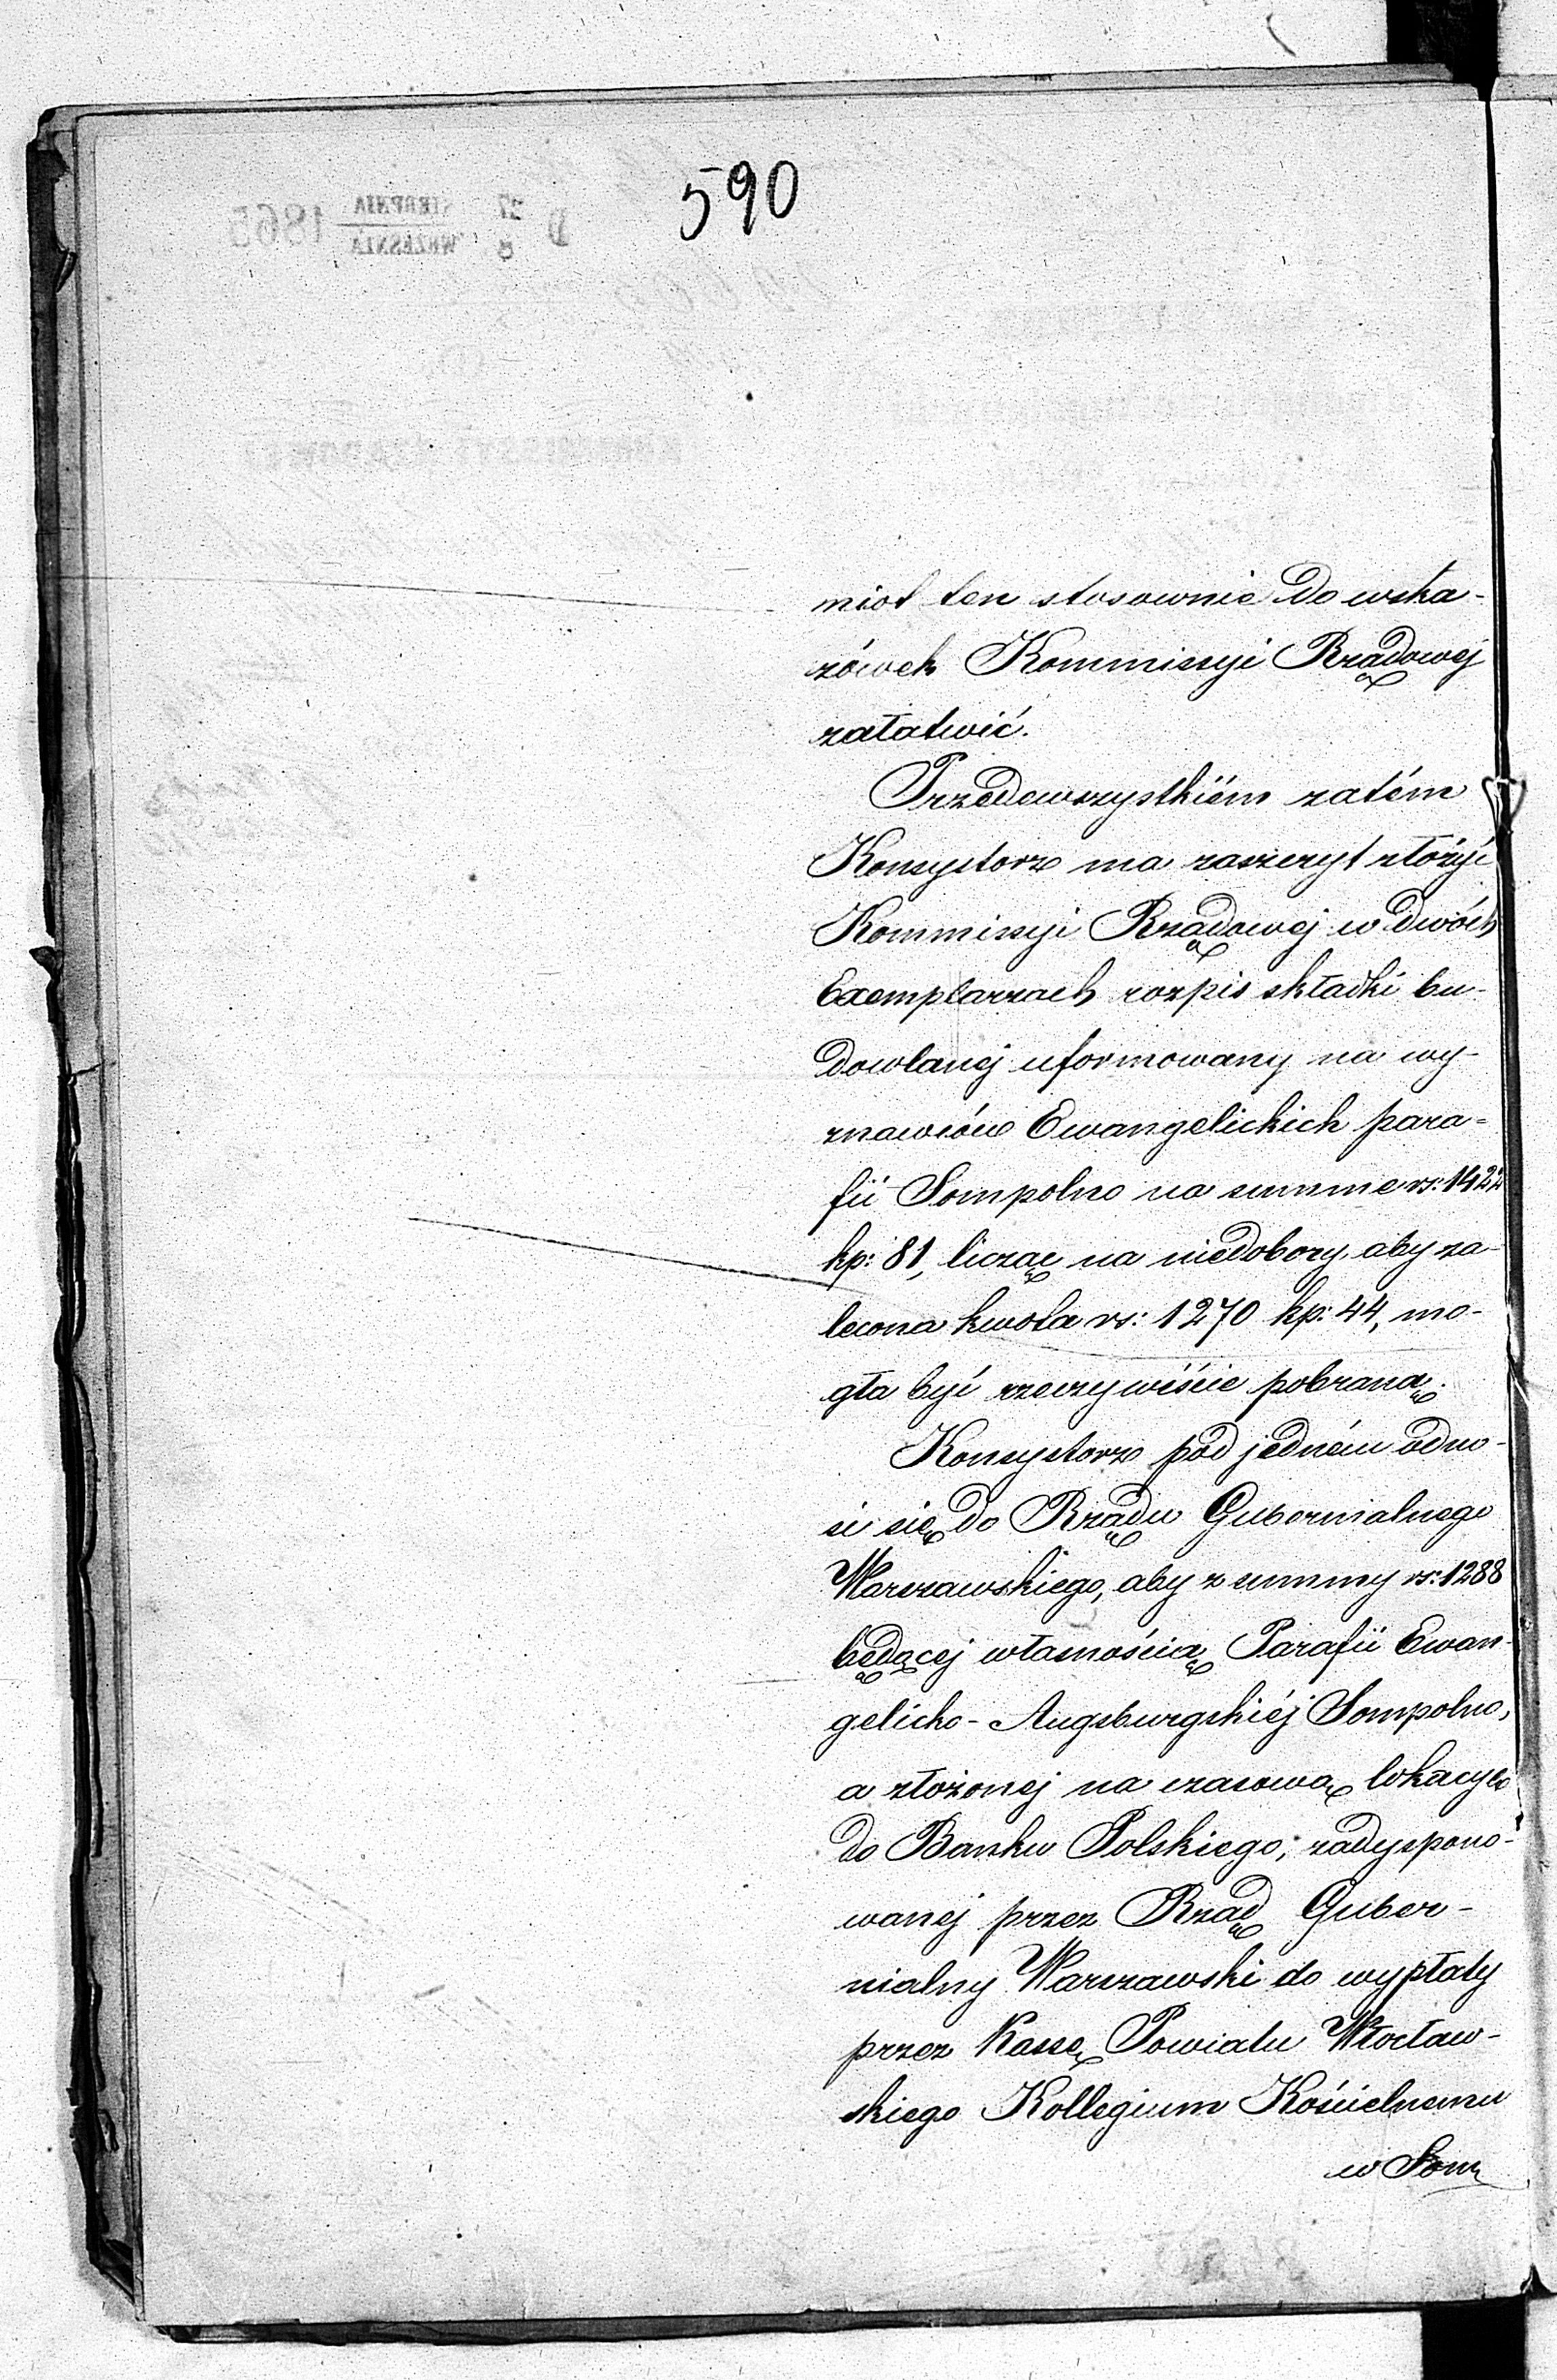 590
miot ten stosownie do wska-
zówek Kommissyi Rządowej
załatwić.
Przedewszystkiém zatém
Konsystorz ma zaszczyt złożyć
Kommissyi Rządowej w dwóch
Exemplarzach rozpis składki bu-
dowlanej uformowany na wy-
znawców Ewangelickich para-
fii Sompolno na summe rs: 1422
kp: 81, licząc na niedobory, aby za-
lecona kwota rs: 1270 kp: 44, mo-
gła być rzeczywiście pobraną.
Konsystorz pod jedném odno-
si się do Rządu Gubernialnego
Warszawskiego, aby z summy rs: 1288
będącej własnością Parafii Ewan-
gelicko-Augsburgskiéj Sompolno,
a złożonej na czasową lokacyę
do Banku Polskiego; zadyspono-
wanej przez Rząd Guber-
nialny Warszawski do wypłaty
przez Kassę Powiatu Włocław-
skiego Kollegium Kościelnemu
w Som